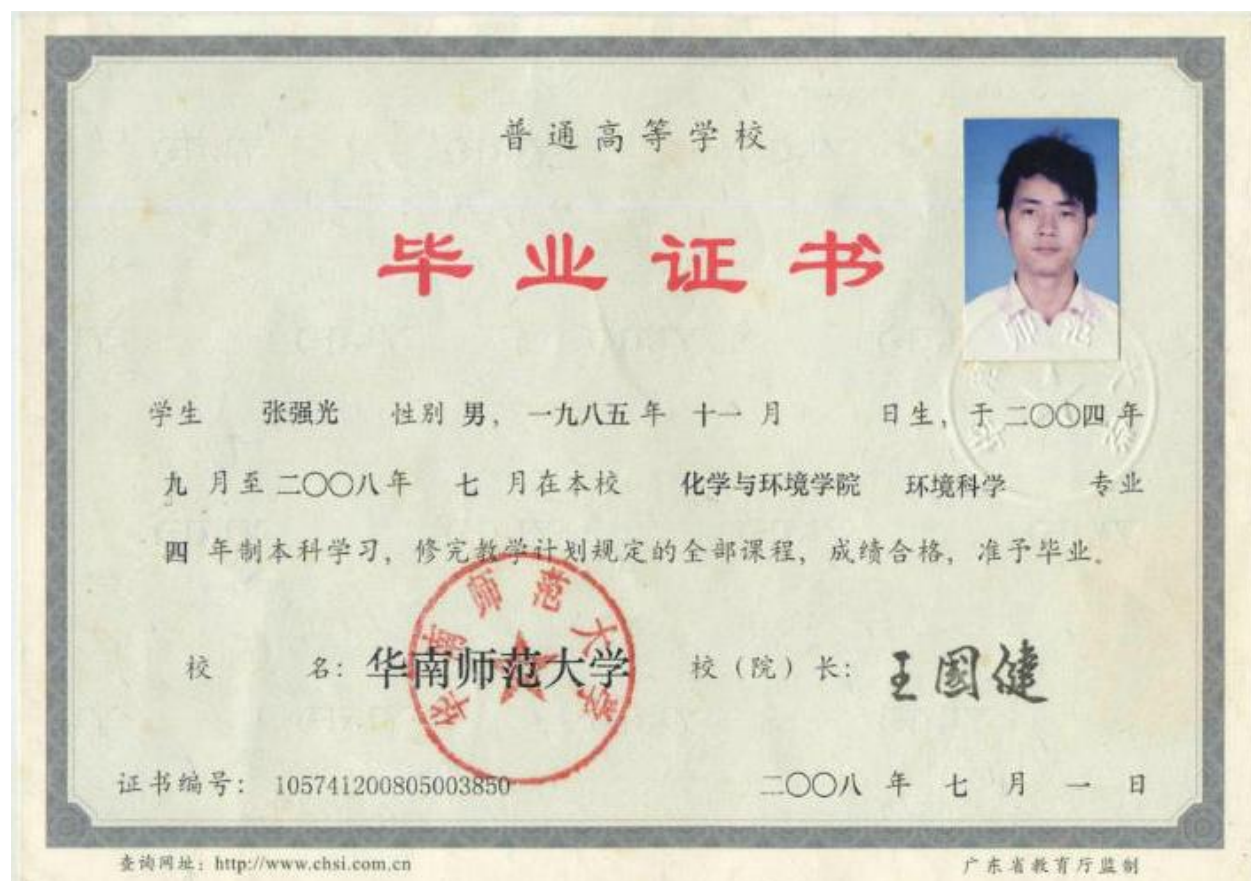 普通高等学校
毕业证书
学生 张强光 性别 男, 一九八五 年 十一 月 日生, 于 二〇〇四 年
九 月至 二〇〇八 年 七 月在本校 化学与环境学院 环境科学 专业
四 年制本科学习, 修完教学计划规定的全部课程, 成绩合格, 准予毕业。
校 名: 华南师范大学 校 (院) 长: 王國健
华南师范大学
证书编号: 105741200805003850 二〇〇八 年 七 月 一 日
查询网址: http://www.chsi.com.cn 广东省教育厅监制